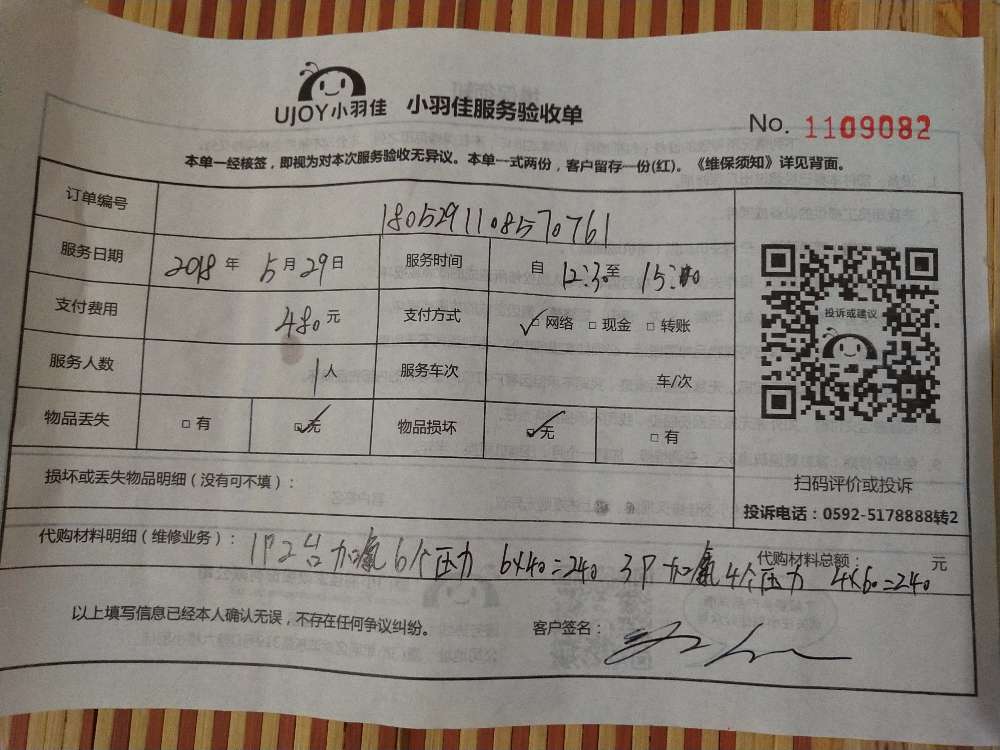 UJOY小羽佳 小羽佳服务验收单
No. 1109082
本单一经核签，即视为对本次服务验收无异议。本单一式两份，客户留存一份(红)。《维保须知》详见背面。
订单编号 180529110857０761
服务日期 2018 年 5 月 29 日 服务时间 自 12:30 至 15:00
支付费用 480 元 支付方式 ✓□ 网络 □ 现金 □ 转账
服务人数 人 服务车次 车/次
物品丢失 □ 有 ☑ 无 物品损坏 ☑ 无 □ 有
投诉或建议
扫码评价或投诉
投诉电话：0592-5178888转2
损坏或丢失物品明细（没有可不填）：
代购材料明细（维修业务）： 1P2台 加氟 6个压力 6×40=240 3P 加氟 4个压力 4×60=240
代购材料总额： 元
以上填写信息已经本人确认无误，不存在任何争议纠纷。 客户签名：